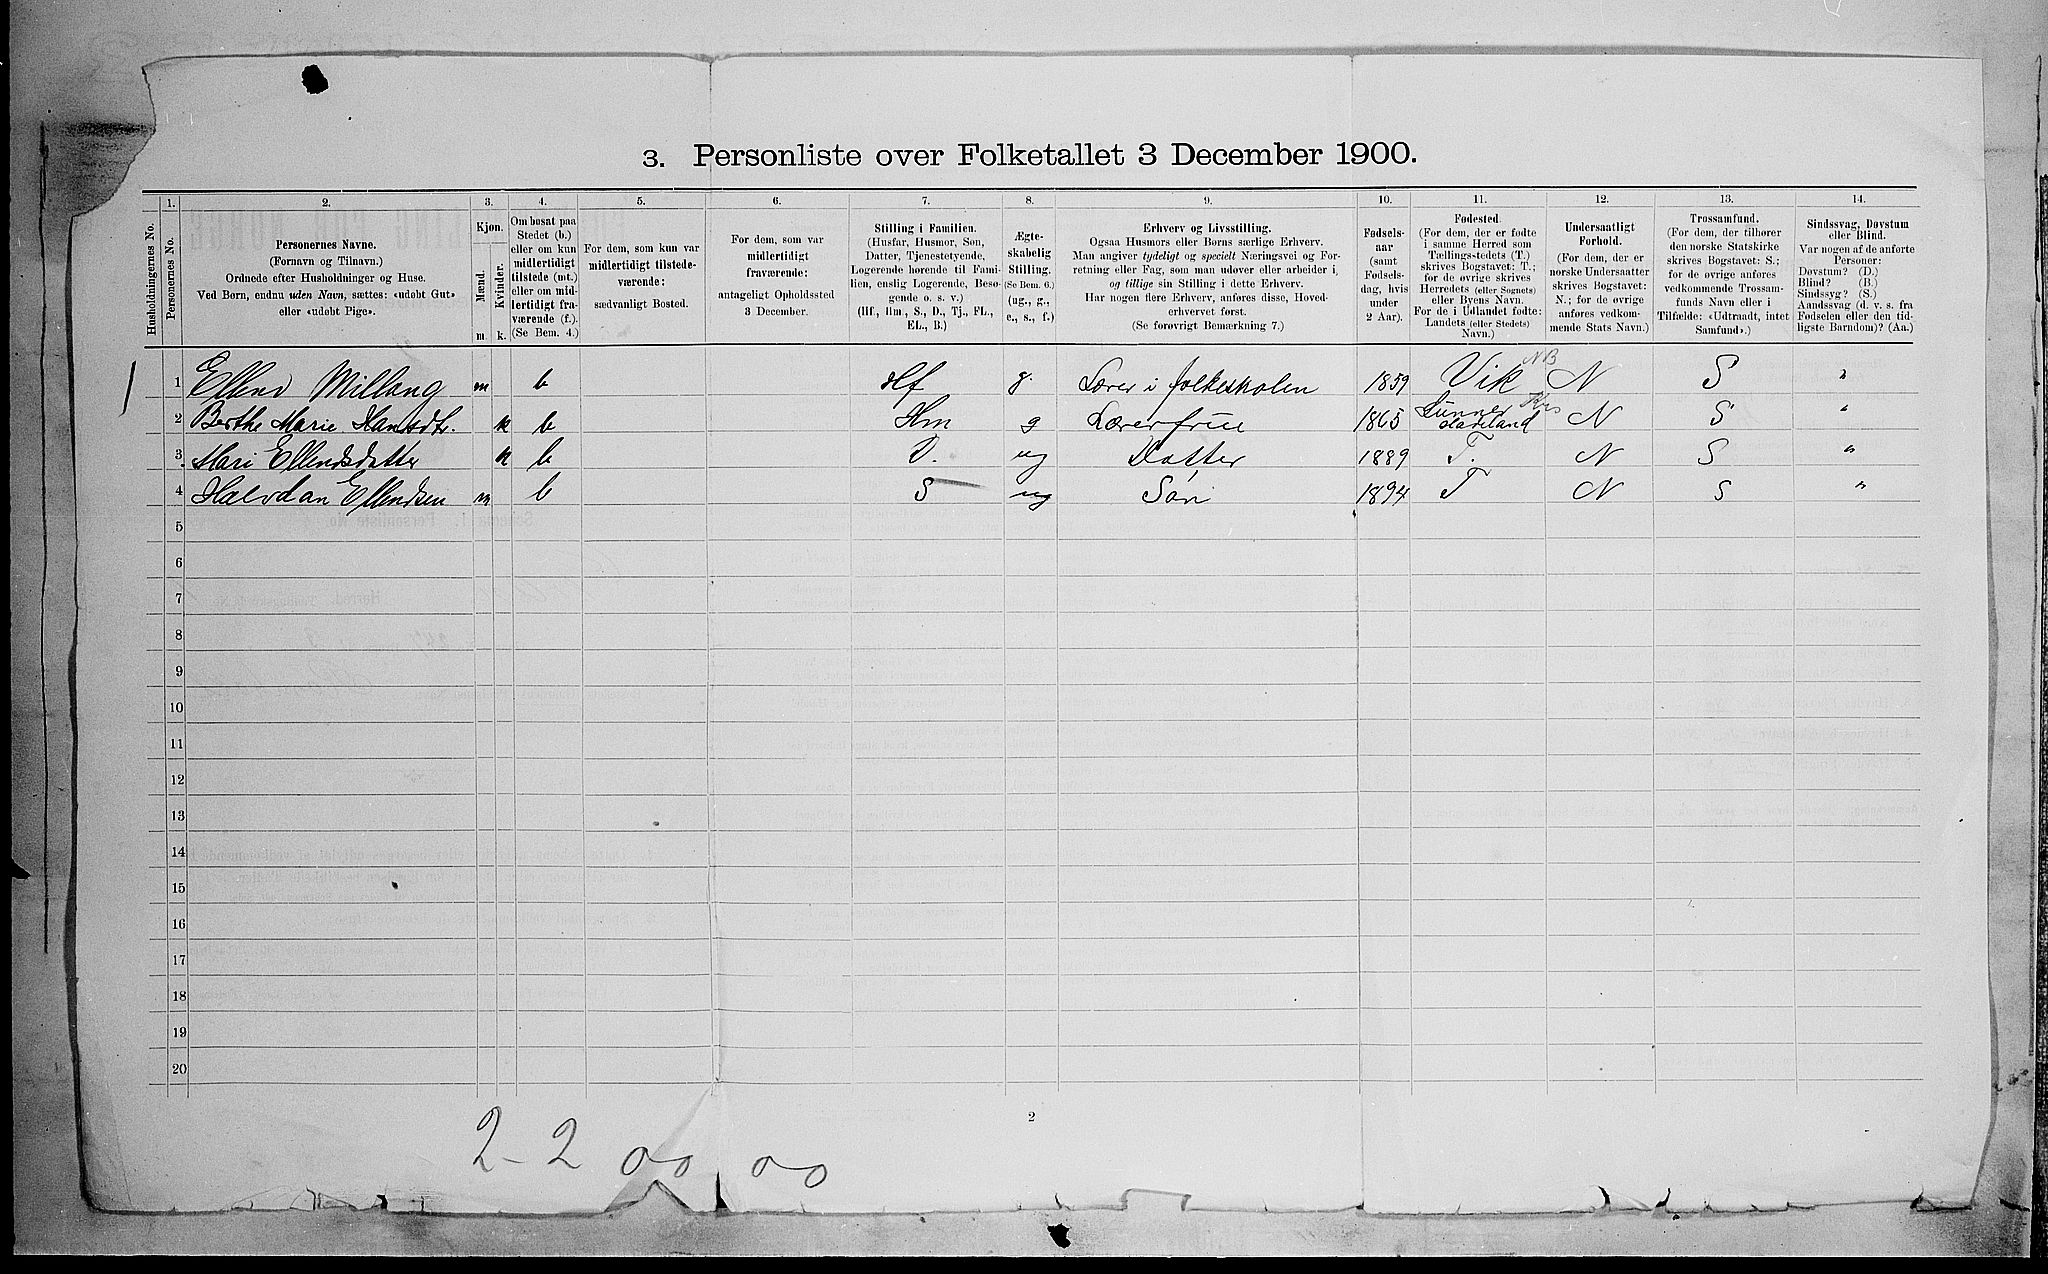 3. Personliste over Folketallet 3 December 1900.
1. 2. 3. 4. 5. 6. 7. 8. 9. 10. 11. 12. 13. 14.
Husholdningernes No.
Personernes No.
Personernes Navne.
(Fornavn og Tilnavn.)
Ordnede efter Husholdninger og Huse.
Ved Børn, endnu uden Navn, sættes: «udøbt Gut»
eller «udøbt Pige».
Kjøn.
Mænd.
Kvinder.
m. k.
Om bosat paa
Stedet (b.)
eller om kun
midlertidigt
tilstede (mt.)
eller om mid-
lertidigt fra-
værende (f.).
(Se Bem. 4.)
For dem, som kun var
midlertidigt tilstede-
værende:
sædvanligt Bosted.
For dem, som var
midlertidigt
fraværende:
antageligt Opholdssted
3 December.
Stilling i Familien.
(Husfar, Husmor, Søn,
Datter, Tjenestetyende,
Logerende hørende til Fami-
lien, enslig Logerende, Besø-
gende o. s. v.)
(Hf., Hm., S., D., Tj., FL.,
EL., B.)
Ægte-
skabelig
Stilling.
(Se Bem. 6.)
(ug., g.,
e., s., f.)
Erhverv og Livsstilling.
Ogsaa Husmors eller Børns særlige Erhverv.
Man angiver tydeligt og specielt Næringsvei og For-
retning eller Fag, som man udøver eller arbeider i,
og tillige sin Stilling i dette Erhverv.
Har nogen flere Erhverv, anføres disse, Hoved-
erhvervet først.
(Se forøvrigt Bemærkning 7.)
Fødsels-
aar
(samt
Fødsels-
dag, hvis
under
2 Aar).
Fødested.
(For dem, der er fødte
i samme Herred som
Tællings-stedets (T.)
skrives Bogstavet: T.;
for de øvrige skrives
Herredets (eller Sognets)
eller Byens Navn.
For de i Udlandet fødte:
Landets (eller Stedets)
Navn.)
Undersaatligt
Forhold.
(For dem, der er
norske Undersaatter
skrives Bogstavet:
N.; for de øvrige
anføres vedkom-
mende Stats Navn.)
Trossamfund.
(For dem, der tilhører
den norske Statskirke
skrives Bogstavet: S.;
for de øvrige anføres
vedkommende Trossam-
funds Navn eller i
Tilfælde: «Udtraadt, intet
Samfund».)
Sindssvag, Døvstum
eller Blind.
Var nogen af de anførte
Personer:
Døvstum? (D.)
Blind? (B.)
Sindssyg? (S.)
Aandssvag (d. v. s. fra
Fødselen eller den tid-
ligste Barndom)? (Aa.)
1 1 Ellend Millang m b Hf g. Lærer i folkeskolen 1859 Vik NB N S "
2 Berthe Marie Hansdtr. k b Hm g Lærerfrue 1865 Lunner Hadeland Kris N S "
3 Mari Ellendsdatter k b D. ug Datter 1889 T. N S "
4 Halvdan Ellendsen m b S ug Søn 1894 T N S "
5
6
7
8
9
10
11
12
13
14
15
16
17
18
19
20
2
2-2 00 00